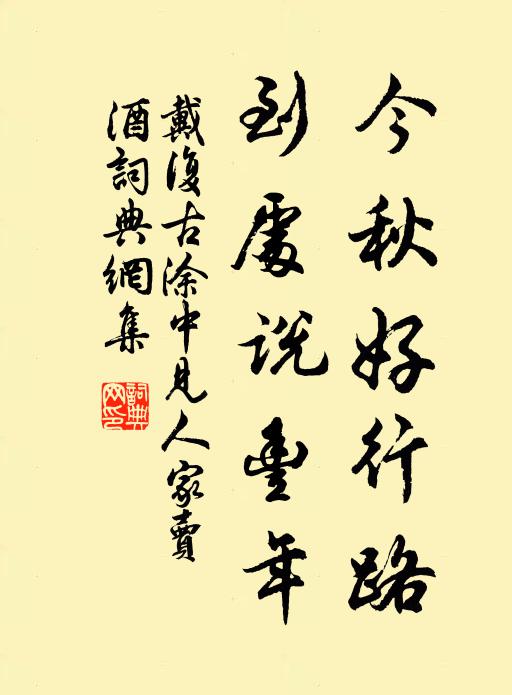 今秋好行路
到處説豐年
戴復古涂中見人家賣
酒詞典網集
詞典網印